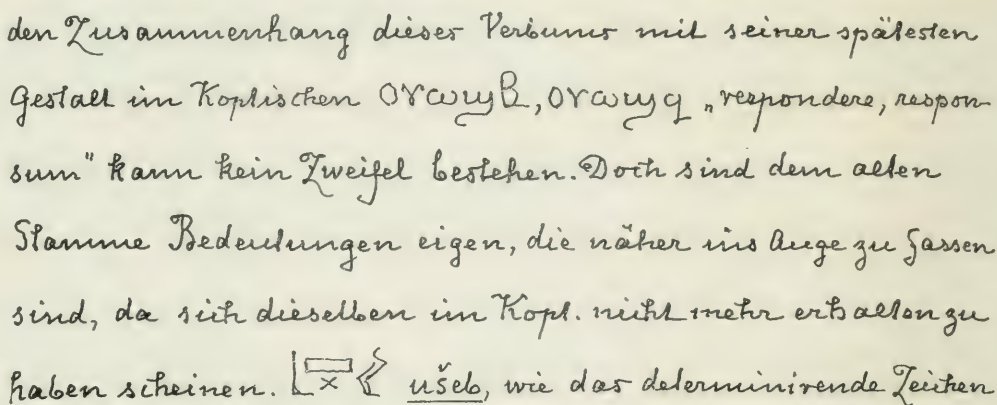 den Zusammenhang dieses Verbums mit seiner spätesten
Gestalt im Koptischen ⲟⲩⲱϣⲃ, ⲟⲩⲱϣϥ „respondere, respon-
sum" kann kein Zweifel bestehen. Doch sind dem alten
Stamme Bedeutungen eigen, die näher ins Auge zu fassen
sind, da sich dieselben im Kopt. nicht mehr erhalten zu
haben scheinen. ušeb, wie das determinirende Zeichen